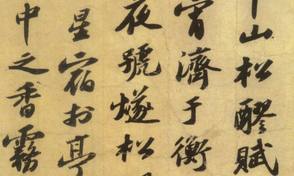 山松醪賦
宵濟于衡
夜號燧松
星宿扵亭
中之香霧